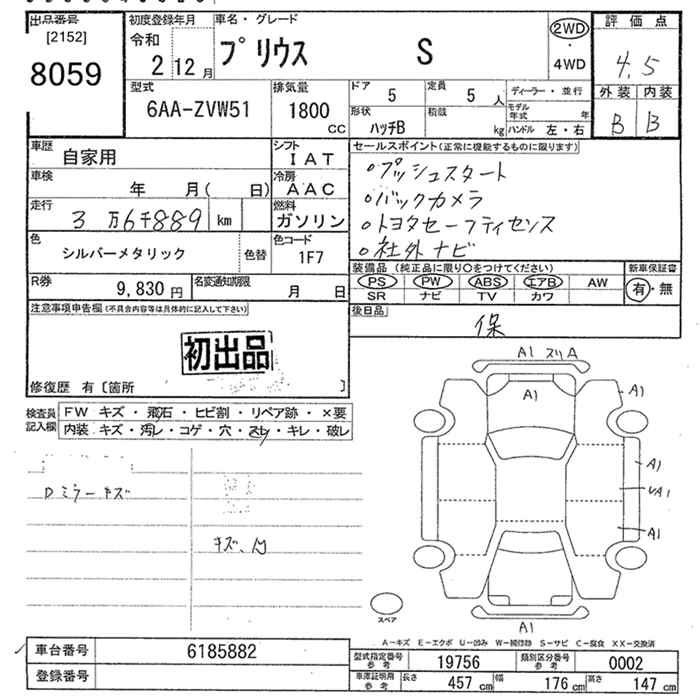 出品番号
[2152]
8059
初度登録年月
令和
2 12 月
車名・グレード
プリウス S
2WD
・
4WD
評価点
4.5
外装 内装
B B
型式
6AA-ZVW51
排気量
1800
CC
ドア 5
定員 5 人
形状 ハッチB
積載 kg
ディーラー・並行
モデル年式 年
ハンドル 左・右
車歴 自家用
シフト IAT
車検 年 月( 日)
冷房 AAC
走行 3 万6千889 km
燃料 ガソリン
色 シルバーメタリック
色替
色コード 1F7
R券 9,830 円
名変通知期限 月 日
セールスポイント(正常に機能するものに限ります)
○プッシュスタート
○バックカメラ
○トヨタセーフティセンス
○社外ナビ
装備品 (純正品に限り○をつけてください)
PS PW ABS エアB AW
SR ナビ TV カワ
新車保証書
有・無
後日品
保
注意事項申告欄(不具合内容等は具体的に記入して下さい)
初出品
修復歴 有〔箇所 〕
検査員記入欄
FW キズ・飛石・ヒビ割・リペア跡・×要
内装 キズ・汚レ・コゲ・穴・スレ・キレ・破レ
Dミラーキズ
キズ、
A1 スリA
A1
A1
A1
A1
A1
A1
スペア
A−キズ E−エクボ U−凹み W−補修跡 S−サビ C−腐食 XX−交換済
車台番号 6185882
登録番号
型式指定番号 参考 19756
類別区分番号 参考 0002
車庫証明用 参考 長さ 457 cm 幅 176 cm 高さ 147 cm